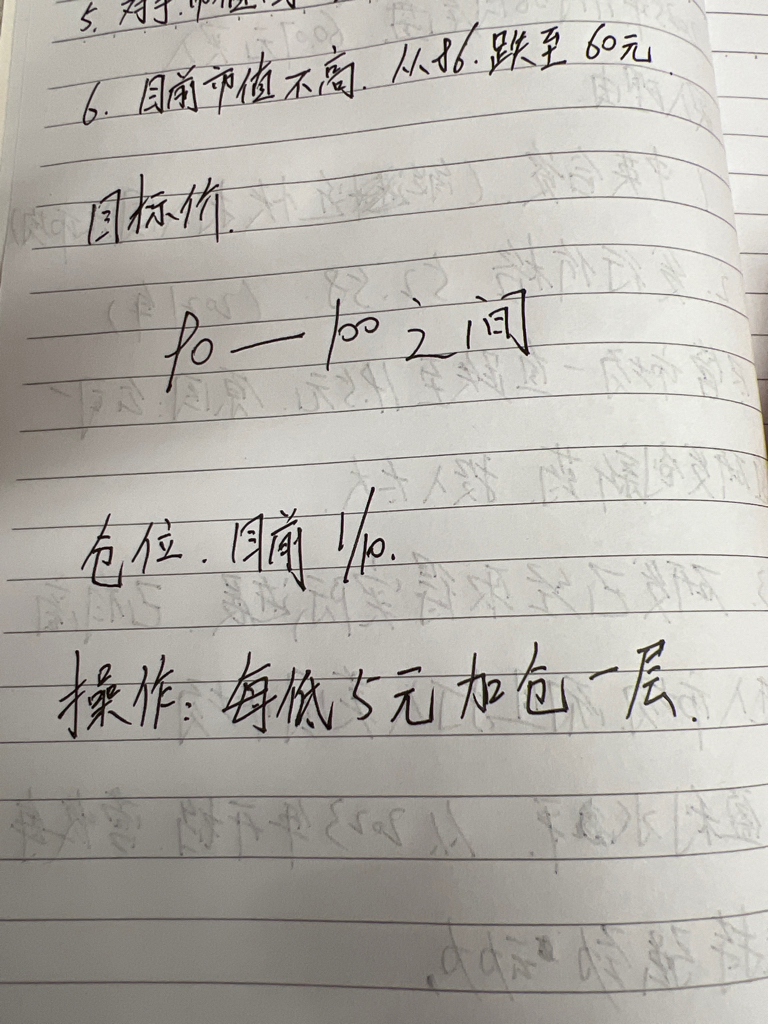 5. 对手.市值
6. 目前市值不高. 从86.跌至60元
目标价.
90—100之间
仓位.目前1/10.
操作:每低5元加仓一层.